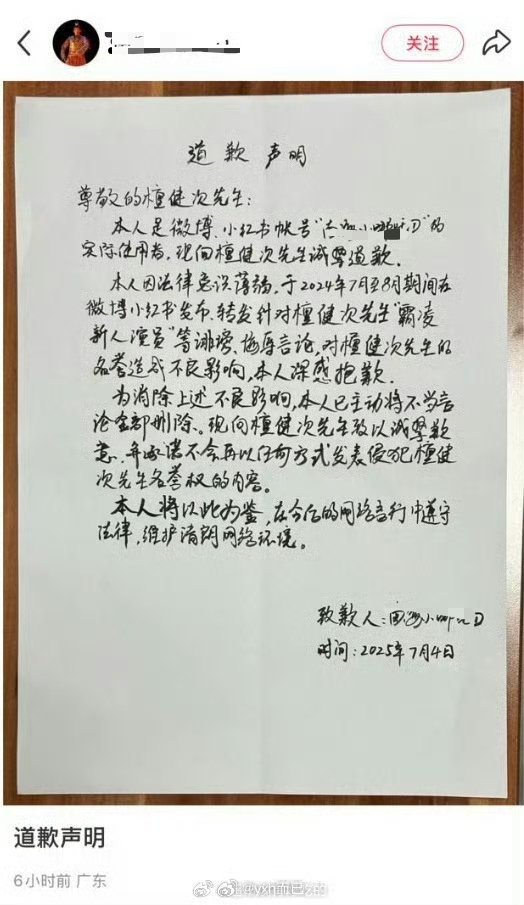 关注
道歉声明
尊敬的檀健次先生：
本人是微博、小红书帐号"小D"的
实际使用者，现向檀健次先生诚挚道歉．
本人因法律意识薄弱，于2024年7月至8月期间在
微博小红书发布、转发针对檀健次先生"霸凌
新人演员"等诽谤、侮辱言论，对檀健次先生的
名誉造成不良影响，本人深感抱歉．
为消除上述不良影响，本人已主动将不当言
论全部删除。现向檀健次先生致以诚挚歉
意，并承诺不会再以任何方式发表侵犯檀健
次先生名誉权的内容。
本人将以此为鉴，在今后的网络言行中遵守
法律，维护清朗网络环境。
致歉人：小D
时间：2025年7月4日
道歉声明
6小时前 广东
@yxn而已